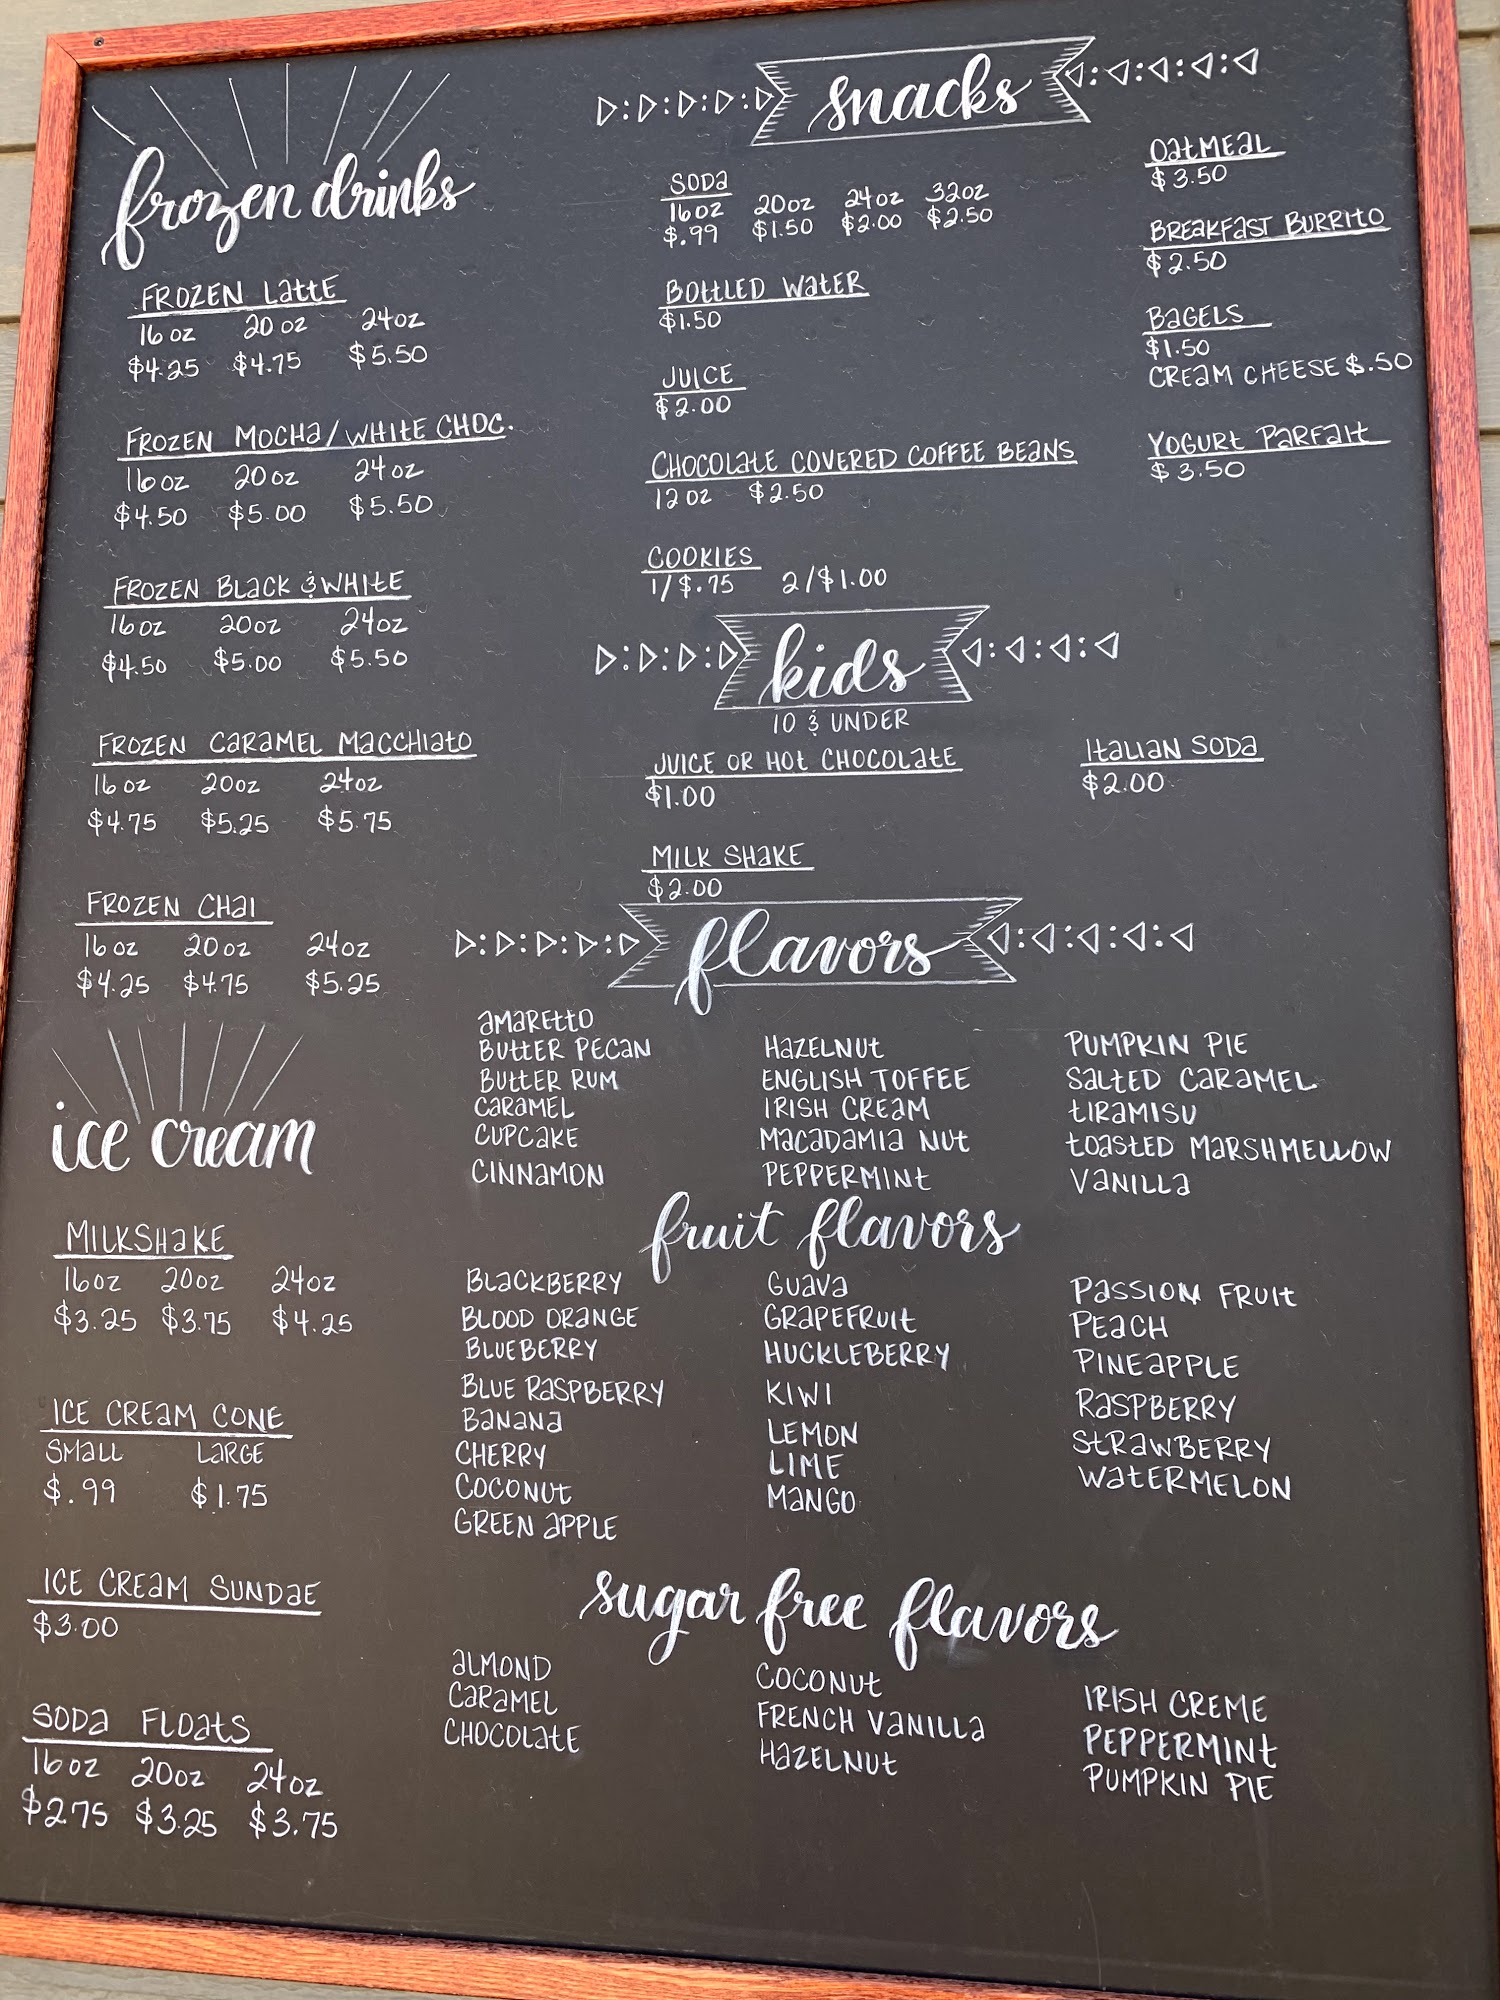 frozen drinks
FROZEN LATTE
16 OZ 20 OZ 24 OZ
$4.25 $4.75 $5.50
FROZEN MOCHA/WHITE CHOC.
16 OZ 20 OZ 24 OZ
$4.50 $5.00 $5.50
FROZEN BLACK & WHITE
16 OZ 20 OZ 24 OZ
$4.50 $5.00 $5.50
FROZEN CARAMEL MACCHIATO
16 OZ 20 OZ 24 OZ
$4.75 $5.25 $5.75
FROZEN CHAI
16 OZ 20 OZ 24 OZ
$4.25 $4.75 $5.25
ice cream
MILKSHAKE
16 OZ 20 OZ 24 OZ
$3.25 $3.75 $4.25
ICE CREAM CONE
SMALL LARGE
$.99 $1.75
ICE CREAM SUNDAE
$3.00
SODA FLOATS
16 OZ 20 OZ 24 OZ
$2.75 $3.25 $3.75
snacks
SODA
16 OZ 20 OZ 24 OZ 32 OZ
$.99 $1.50 $2.00 $2.50
BOTTLED WATER
$1.50
JUICE
$2.00
CHOCOLATE COVERED COFFEE BEANS
12 OZ $2.50
COOKIES
1/$.75 2/$1.00
OATMEAL
$3.50
BREAKFAST BURRITO
$2.50
BAGELS
$1.50
CREAM CHEESE $.50
YOGURT PARFAIT
$3.50
kids
10 & UNDER
JUICE OR HOT CHOCOLATE
$1.00
MILK SHAKE
$2.00
ITALIAN SODA
$2.00
flavors
AMARETTO
BUTTER PECAN
BUTTER RUM
CARAMEL
CUPCAKE
CINNAMON
HAZELNUT
ENGLISH TOFFEE
IRISH CREAM
MACADAMIA NUT
PEPPERMINT
PUMPKIN PIE
SALTED CARAMEL
TIRAMISU
TOASTED MARSHMELLOW
VANILLA
fruit flavors
BLACKBERRY
BLOOD ORANGE
BLUEBERRY
BLUE RASPBERRY
BANANA
CHERRY
COCONUT
GREEN APPLE
GUAVA
GRAPEFRUIT
HUCKLEBERRY
KIWI
LEMON
LIME
MANGO
PASSION FRUIT
PEACH
PINEAPPLE
RASPBERRY
STRAWBERRY
WATERMELON
sugar free flavors
ALMOND
CARAMEL
CHOCOLATE
COCONUT
FRENCH VANILLA
HAZELNUT
IRISH CREME
PEPPERMINT
PUMPKIN PIE